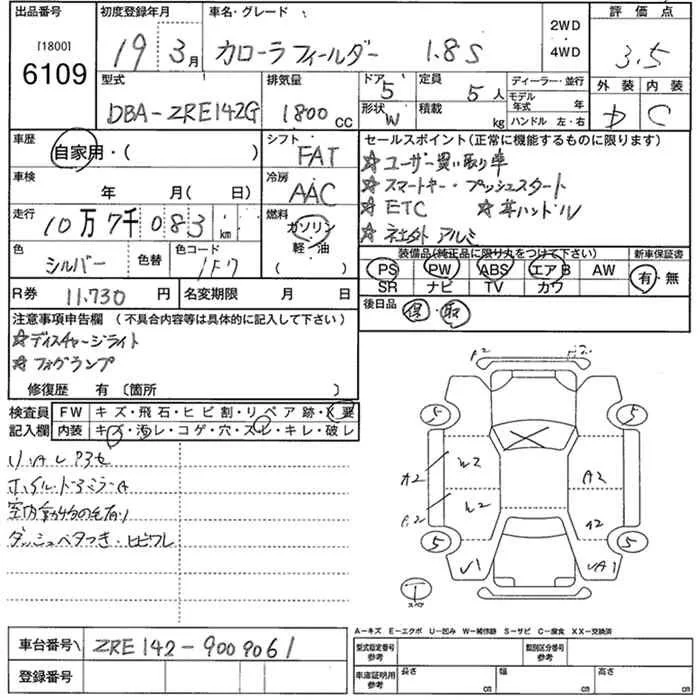 出品番号
[1800]
6109
初度登録年月
19 3月
車名・グレード
カローラフィールダー 1.8S
2WD
・
4WD
評価点
3.5
外装 内装
D C
型式
DBA-ZRE142G
排気量
1800 CC
ドア 5
形状 W
定員
5人
積載
kg
ディーラー・並行
モデル年式 年
ハンドル 左・右
車歴
自家用・( )
シフト
FAT
車検
年 月( 日)
冷房
AAC
走行
10万7千083 km
燃料
ガソリン
軽・油
( )
色
シルバー
色替
色コード
1F7
R券
11.730 円
名変期限 月 日
セールスポイント(正常に機能するものに限ります)
☆ユーザー買い取り車
☆スマートキー・プッシュスタート
☆ETC ☆革ハンドル
☆社外アルミ
装備品(純正品に限り丸をつけて下さい)
PS PW ABS エアB AW
SR ナビ TV カワ
新車保証書
有・無
後日品
保・取
注意事項申告欄 (不具合内容等は具体的に記入して下さい)
☆ディスチャージライト
☆フォグランプ
修復歴 有 〔箇所 〕
検査員
記入欄
FW キズ・飛石・ヒビ割・リペア跡・X要
内装 キズ・汚レ・コゲ・穴・スレ・キレ・破レ
ホイル・ドアミラーA
室内動物の毛有り
ダッシュベタつき・ヒビワレ
5 5
A2 W2 A2
W2
5 5
スペア
A-キズ E-エクボ U-凹み W-補修跡 S-サビ C-腐食 XX-交換済
車台番号 ZRE142-9009061
登録番号
型式指定番号
参考
類別区分番号
参考
車庫証明用
参考
長さ cm
幅 cm
高さ cm